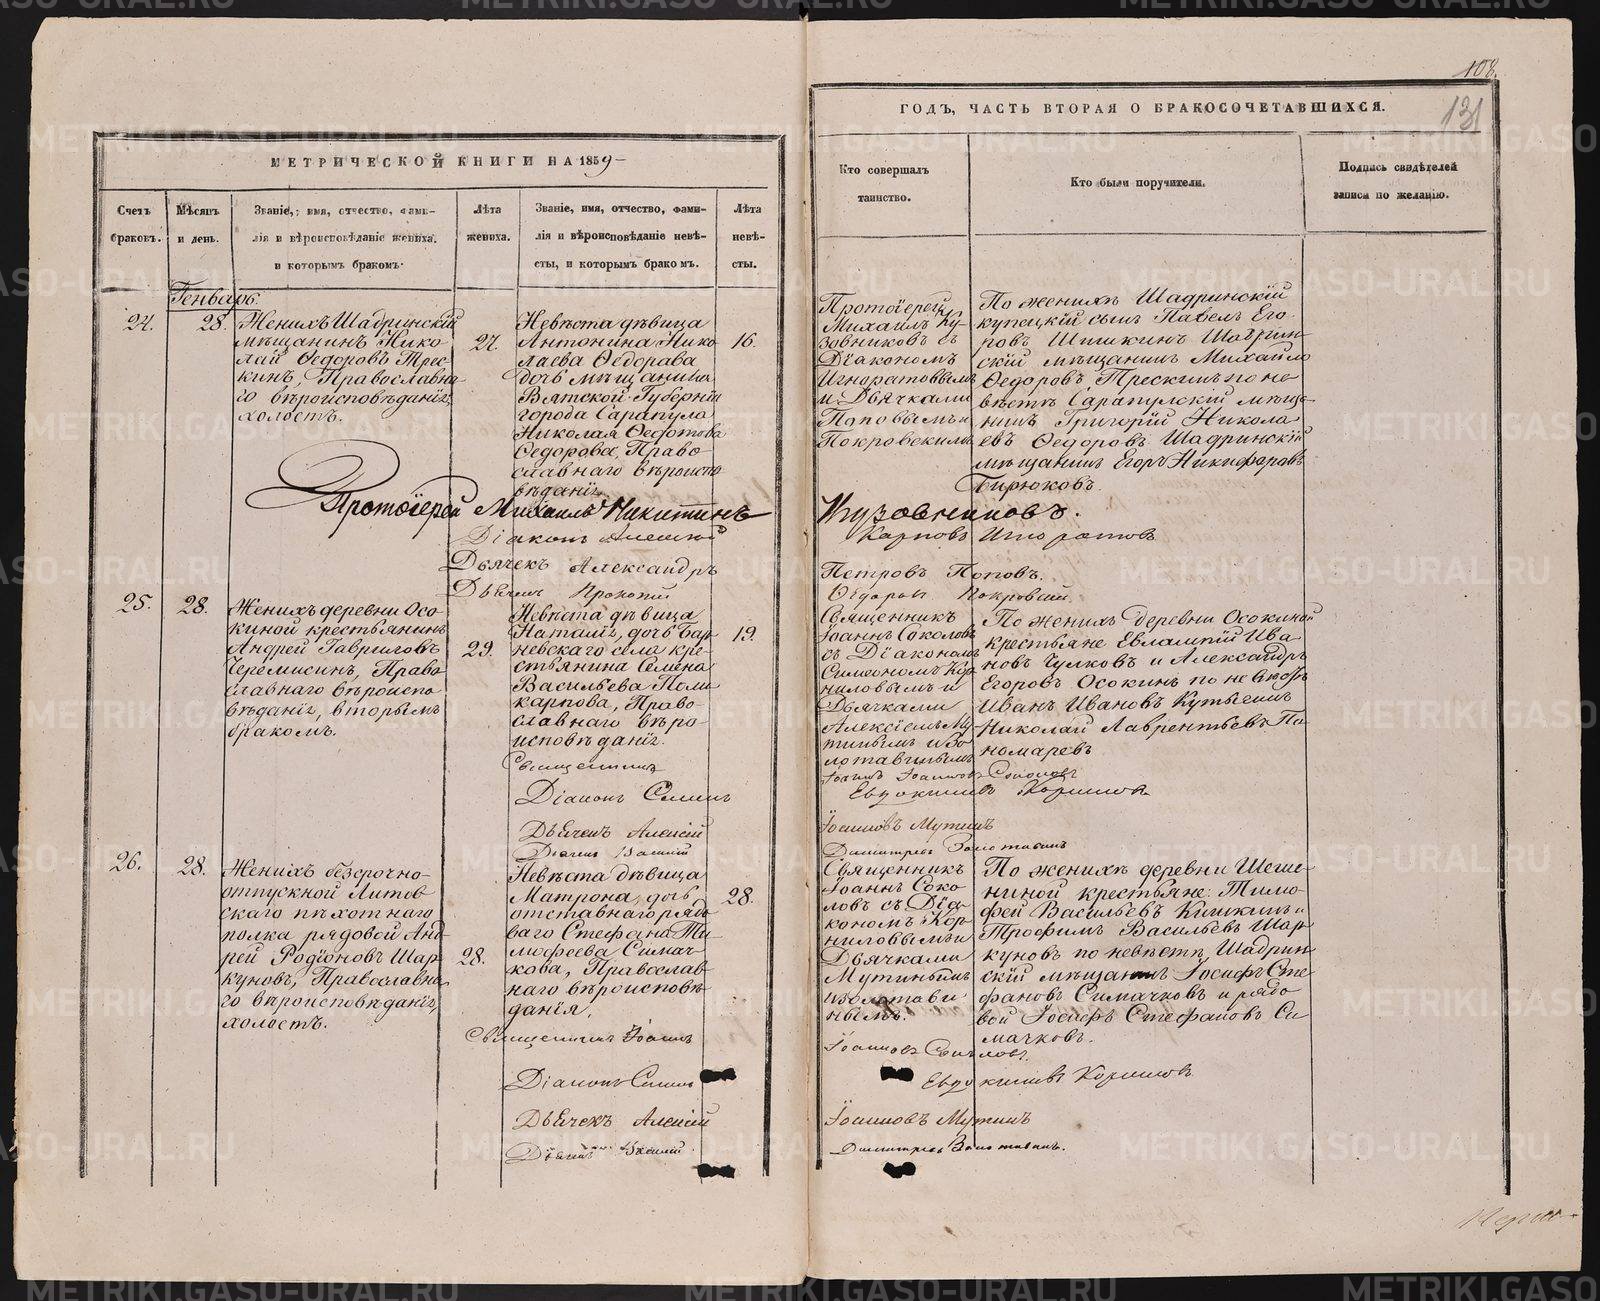 108.
131
МЕТРИЧЕСКОЙ КНИГИ НА 1859
ГОДЪ, ЧАСТЬ ВТОРАЯ О БРАКОСОЧЕТАВШИХСЯ.
Счетъ
браковъ.
Мѣсяцъ
и день.
Званіе, имя, отчество, фами-
лія и вѣроисповѣданіе жениха,
и которымъ бракомъ.
Лѣта
жениха.
Званіе, имя, отчество, фами-
лія и вѣроисповѣданіе невѣ-
сты, и которымъ бракомъ.
Лѣта
невѣ-
сты.
Кто совершалъ
таинство.
Кто были поручители.
Подпись свидѣтелей
записи по желанію.
Генварь.
24.
28.
Женихъ Шадринскій
мѣщанинъ Нико-
лай Ѳедоровъ Трес-
кинъ, Православна-
го вѣроисповѣданія,
холостъ.
27.
Невѣста дѣвица
Антонина Нико
лаева Ѳедорова
дочь мѣщанина
Вятской Губерніи
города Сарапула
Николая Ѳедотова
Ѳедорова, Право-
славнаго вѣроиспо
вѣданія.
16.
Протоіерей
Михаилъ Ку-
зовниковъ съ
Діакономъ
Игноратовымъ
и Дьячками
Поповымъ и
Покровскимъ
По женихѣ Шадринскій
купецкій сынъ Павелъ Его
ровъ Шишкинъ Шадрин-
скій мѣщанинъ Михайло
Ѳедоровъ Трескинъ по не
вѣстѣ Сарапулскій мѣща-
нинъ Григорій Никола
евъ Ѳедоровъ Шадринскій
мѣщанинъ Егоръ Никифоровъ
Бирюковъ.
Протоіерей Михаилъ Никитинъ Кузовниковъ.
Діаконъ Алексѣй Карповъ Игноратовъ
Дьячекъ Александръ Петровъ Поповъ.
Дьячекъ Прокопій Ѳедоровъ Покровскій
25.
28.
Женихъ деревни Осо-
киной крестьянинъ
Андрей Гавриловъ
Черемисинъ, Право
славнаго вѣроиспо
вѣданія, вторымъ
бракомъ.
29.
Невѣста дѣвица
Наталія, дочь Бар
невскаго села кре-
стьянина Семена
Васильева Поли
карпова, Право-
славнаго вѣро-
исповѣданія.
19.
Священникъ
Іоаннъ Соколовъ
съ Діакономъ
Симеономъ Кор
ниловымъ и
Дьячками
Алексіемъ Му
тинымъ и Зо-
лотавинымъ
По женихѣ деревни Осокиной
крестьяне Евлампій Ива
новъ Чулковъ и Александръ
Егоровъ Осокинъ по невѣстѣ
Иванъ Ивановъ Кутыгинъ
Николай Лаврентьевъ По
номаревъ
Священникъ Іоаннъ Іоанновъ Соколовъ
Діаконъ Симеонъ Евдокимовъ Корниловъ
Дьячекъ Алексій Іоанновъ Мутинъ
Дьячекъ Василій Димитріевъ Золотавинъ
26.
28.
Женихъ безсрочно-
отпускной Литов
скаго пѣхотнаго
полка рядовой Анд
рей Родіоновъ Шар
куновъ, Православна
го вѣроисповѣданія,
холостъ.
28.
Невѣста дѣвица
Матрона, дочь
отставнаго рядо
ваго Стефана Ти
мофеева Симач-
кова, Православ
наго вѣроисповѣ
данія.
28.
Священникъ
Іоаннъ Соко
ловъ съ Діа-
кономъ Кор
ниловымъ и
Дьячками
Мутинымъ
и Золотави
нымъ.
По женихѣ деревни Шеши
ниной крестьяне: Тимо
фей Васильевъ Кишкинъ и
Трофимъ Васильевъ Шар
куновъ по невѣстѣ Шадрин
скій мѣщанинъ Іосифъ Сте
фановъ Симачковъ и рядо
вой Іосифъ Стефановъ Си
мачковъ.
Священникъ Іоаннъ Іоанновъ Соколовъ.
Діаконъ Симеонъ Евдокимовъ Корниловъ
Дьячекъ Алексій Іоанновъ Мутинъ
Дьячекъ Василій Димитріевъ Золотавинъ.
METRIKI.GASO-URAL.RU